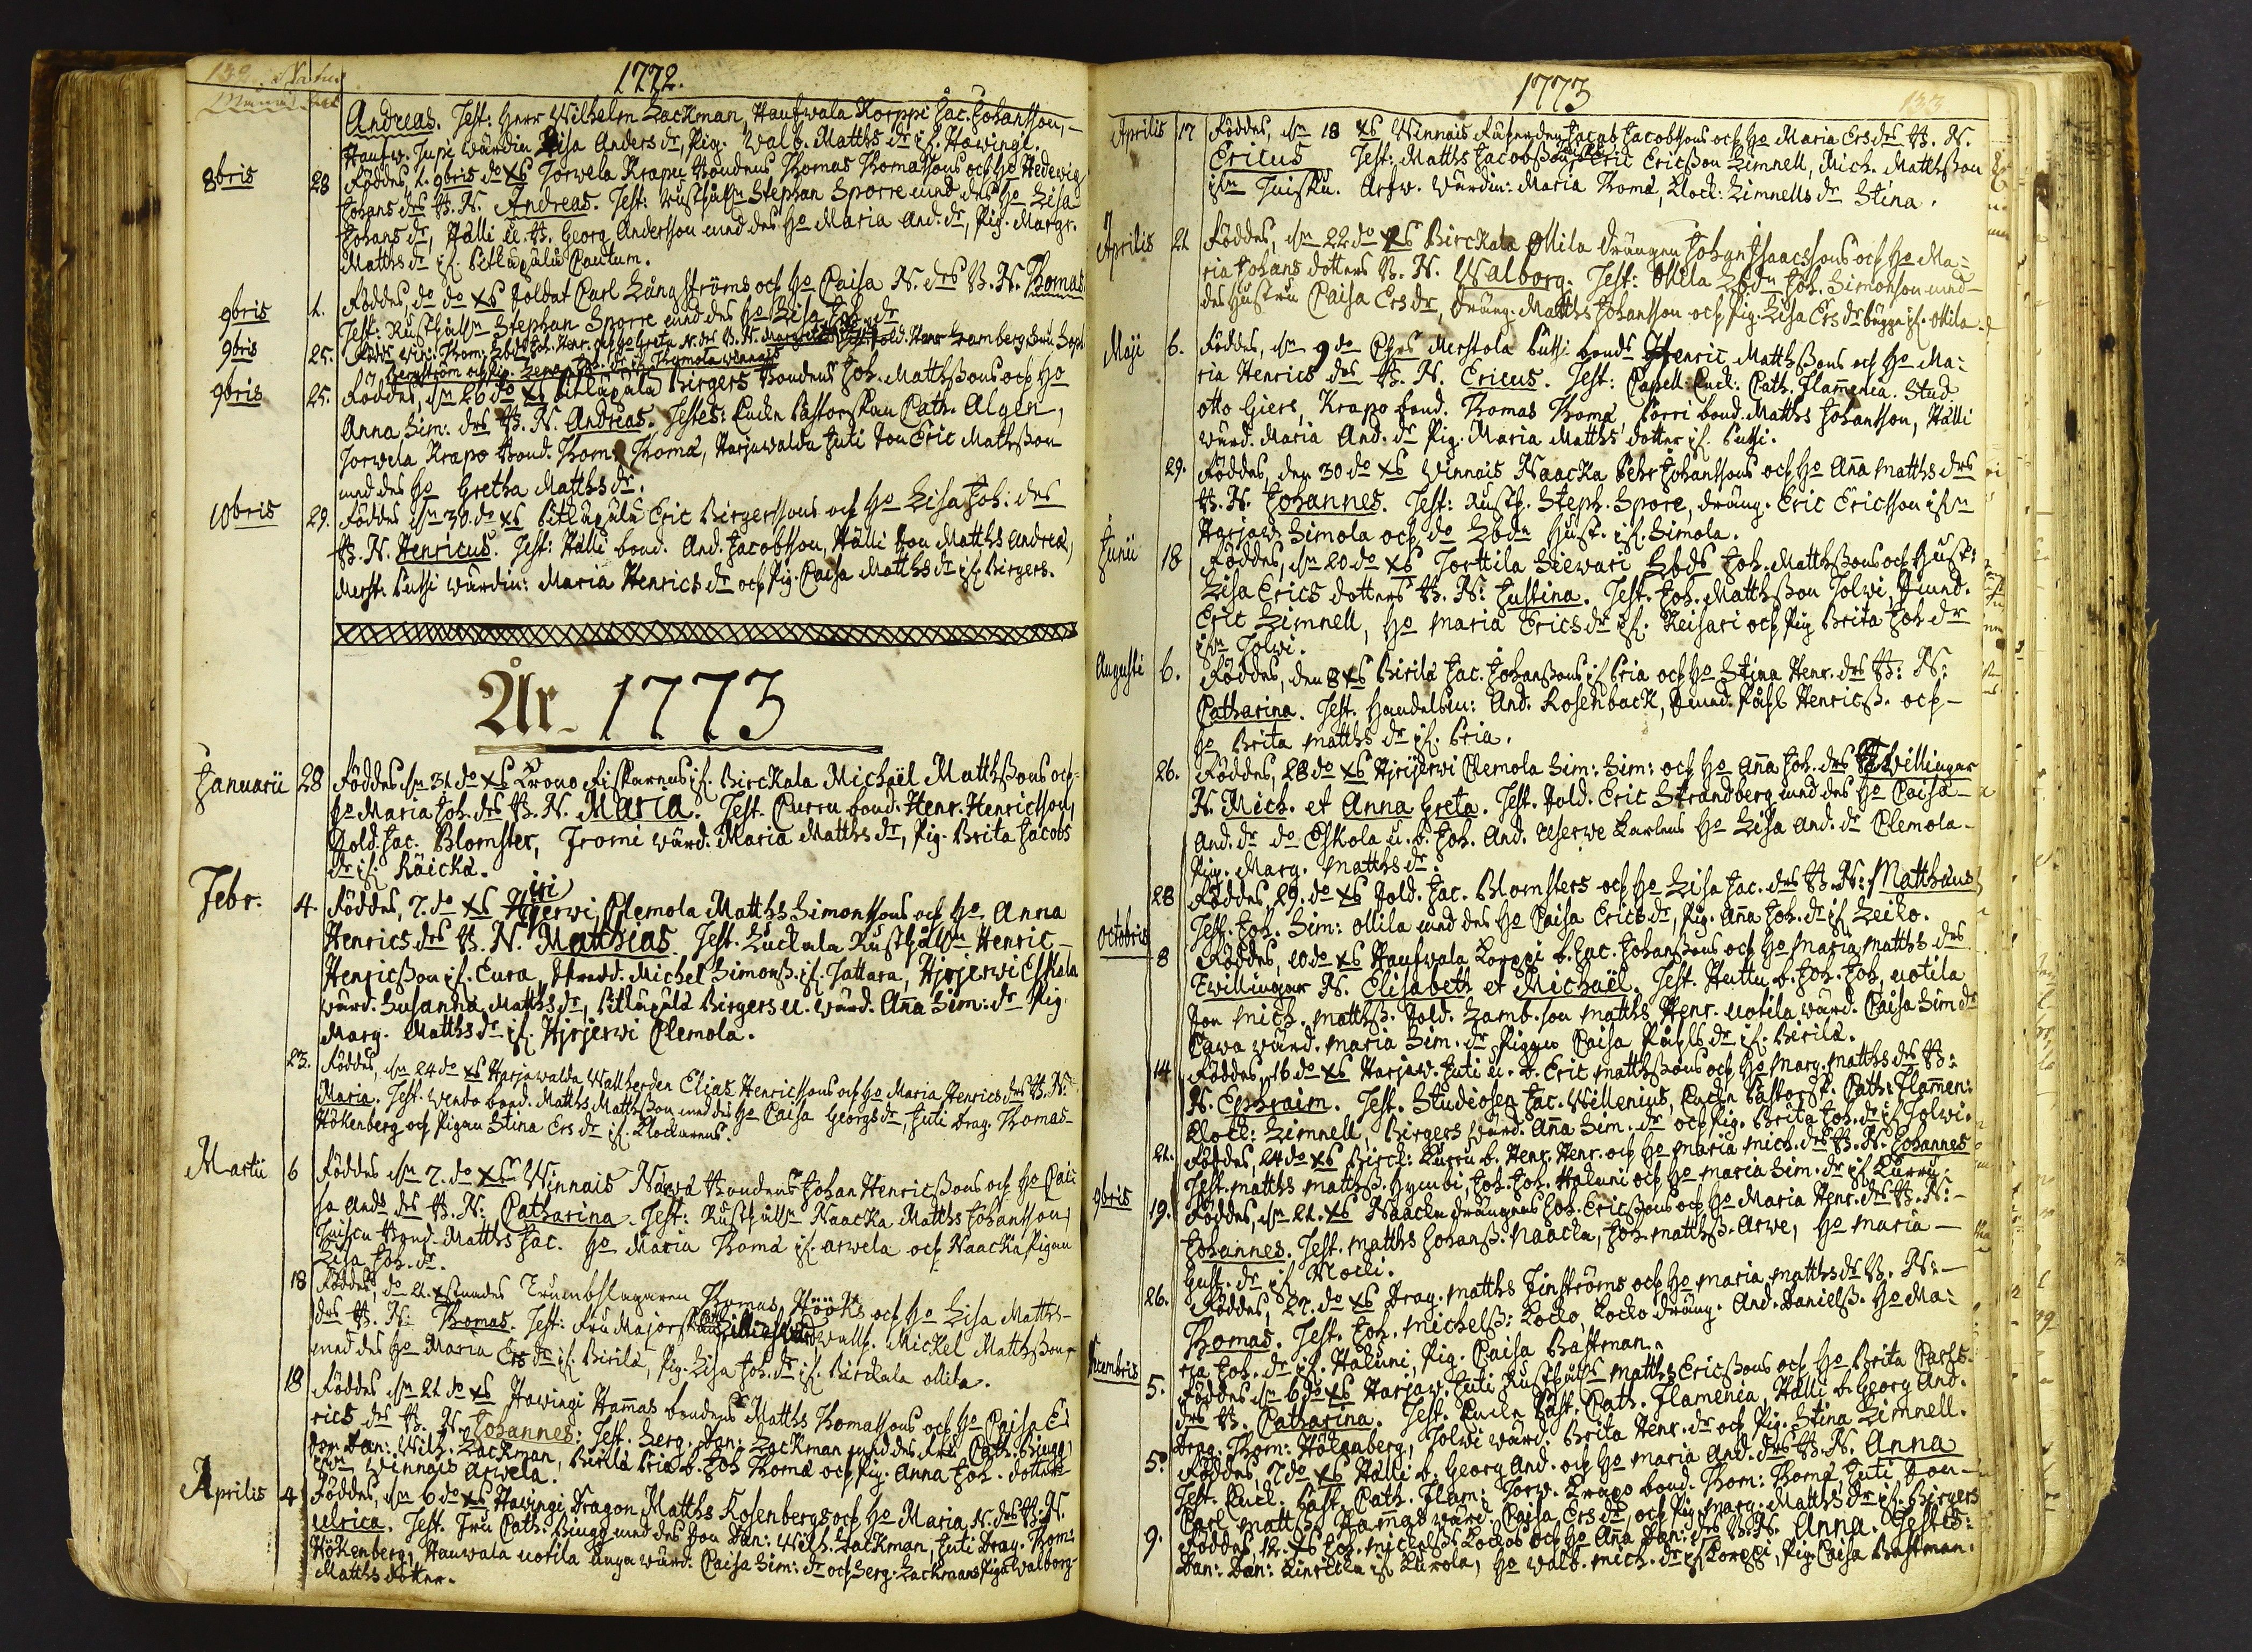 132. Natus
1772.
Månad.
Andreas. Test: Herr Wilhelm Zackman, Hautwala Korppi Jac. Johansson,
wärdin Lisa Anders dr, Pig. Walb. Matths dr if. Hawingi.
8bris 28 Föddes, 1. 9bris do Xs Torwela Krapu Bondens Thomas Thomassons och Ho Hedewig
Johans drs B. N. Andreas. Test: Rusthålln Stephan Sporre med des Ho Lisa
Johans dr, Hälli u. b. Georg Andersson med des Ho Maria And. dr, Pig. Margr.
Matths dr if. Pitkäpälä Cantum.
9bris 1. Föddes, do do Xs Soldat Carl Långströms och Ho Caisa N. drs B. N. Thomas.
Test: Rusthålln Stephan Sporre med des Ho Lisa Joh. dr
9bris 25. Thom. Joh. Henr. och Ho Greta N. drs B. N. Sold. Hans Lamberg
9bris 25. Föddes, dn 26 do Xs Pitkäpälä Birgers Bondens Joh. Matthssons och Ho
Anna Sim: drs B. N. Andreas. Testes: Enckn Pastorskan Cath. Algen,
Torwela Krapo Bond. Thom. Thomæ, Harjawalda Juti Son Eric Mathsson
med des Ho Gretha Matths dr.
10bris 29. Föddes dn 30. do Xs Pitkäpälä Eric Birgerssons och Ho Lisa Joh: drs
B. N. Henricus. Test: Hälli bond. And. Jacobsson, Hälli Son Matths Andreæ,
Merst. Putsi wärdin: Maria Henrics dr och Pig. Caisa Matths dr if. Birgers.
År 1773
Januarii 28 Föddes dn 31 do Xs Krono fiskarens if. Birckala Michaël Matthssons och
Ho Maria Joh. drs B. N. Maria. Test. Curru bond. Henr. Henricsson,
Sold. Jac. Blomster, Jromi wärd. Maria Matths dr, Pig. Brita Jacobs
dr if. Räickä.
Febr. 4. Föddes, 7. do Xs Hjrjerwi Clemola Matths Simonssons och Ho Anna
Henrics drs B. N. Matthias. Test. Luckala Rusthålln Henric
Henricsson if. Eura, Skredd. Michel Simonss. if. Tattara, Hjrjerwi Eskola
wärd. Susanna Matths dr, Pitkäpälä Birgers u. wärd. Aña Sim: dr Pig.
Marg. Matths dr if. Hjrjerwi Clemola.
23. Föddes, dn 24 do Xs Harjawalda Wallherden Elias Henricssons och Ho Maria Henrics drs B. N.
Maria. Test. Wendo bond. Matths Matthsson med des Ho Caisa Georgs dr, Juti Drag. Thomas
Hökenberg och Pigan Stina Ers dr if. Klockarens.
Martii 6 Föddes dn 7. do Xs Winnais Nawa Bondens Johan Henricssons och Ho Cai=
sa Ands drs B. N: Catharina. Test: Rusthålln Naacka Matths Johansson,
Juiscu Bond. Matths Jac. Ho Maria Thomæ if. Arwela och Naacka Pigan
Lisa Joh. dr.
18 Föddes, do 21. Xstnades Trumbslagaren Thomas Hööks och Ho Lisa Matths
drs B. N: Thomas. Test: Fru Majorskan Mickel Matthsson
med des Ho Maria Ers dr if. Birilä, Pig. Lisa Joh. dr if. Birckala Ollila.
18 Föddes dn 21 do Xs Hawingi Hamas bondens Matths Thomassons och Ho Caisa E=
rics drs B. N. Johannes: Test. Serg. Dan: Zackman med des Fru Cath. Bingg,
Son Dan: Wilh. Zackman, Birilä Pria b. Joh. Thomæ och Pig. Anna Joh. dotter
ifrn Winnais Arwela.
Aprilis 4 Föddes, dn 6 do Xs Hawingi Dragon Matths Rosenbergs och Ho Maria N. drs B. N.
Ulrica. Test. Fru Cath. Bingg med des Son Dan: Wilh. Zackman, Juti Drag. Thom:
Hökenberg, Hauwala Uotila unga wärd. Caisa Sim: dr och Serg: Zackmans Piga Walborg
Matths dotter.
1773
133
Aprilis 17 Föddes, dn 18 Xs Winnais Jacob Jacobssons och Ho Maria Ers drs B. N.
Ericus Test: Matths Jacobsson, Eric Ericsson Zimnell, Mich. Matthsson
ifrn Juisku. Arfw. wärdin: Maria Thomæ, Klock: Zimnells dr Stina.
Aprilis 21 Föddes, dn 22 do Xs Birckala Ollila drängen Johan Jsaacssons och Ho Ma=
ria Johans dotters B. N. Walborg. Test: Ollila Sbdn Joh. Simonson med
des Hustru Caisa Ers dr, Dräng. Matths Johansson och Pig. Lisa Ers dr bägge if. Ollila.
Maji 6. Föddes, dn 9 do Chrs Merstola Putsi bonds Henric Matthssons och Ho Ma=
ria Henrics drs B. N. Ericus. Test: Capell: Enck: Cath. Flamenia. Stud
Otto Giers, Krapo bond. Thomas Thomæ, Korri bond. Matths Johansson, Hälli
wärd. Maria And. dr Pig. Maria Matths dotter if. Putsi.
29. Föddes, den 30 do Xs Winnais Naacka Pehr Johanssons och Ho Aña Matths drs
B. N. Johannes. Test: Rusth. Steph. Spore, dräng. Eric Ericsson ifrn
Harjaw. Simola och do Sbdn Hust. if. Simola.
Junii 18 Föddes, dn 20 do Xs Torttila Siewari Sbds Joh. Matthssons och Hust:
Lisa Erics dotters B. N: Justina. Test. Joh. Matthsson Tolwi,
Eric Zimnell, Ho Maria Erics dr if. Keisari och Pig Brita Joh dr
ifrn Tolwi.
Augusti 6. Föddes, den 8 Xs Birilä Jac. Johanssons if Pria och Ho Stina Henr. drs B: N:
Catharina. Test. Handelsm: And. Rosenback, Påhl Henricss. och
Ho Brita Matths dr if. Pria.
26. Föddes, 28 do Xs Hjrijerwi Clemola Sim: Sim: och Ho Aña Joh. drs Twillingar
N. Mich. et Anna Greta. Test. Sold. Eric Strandberg med des Ho Caisa
And. dr do Eskola u. b. Joh. And. Userwe Karlens Ho Lisa And. dr Clemola
Pig. Marg. Matths dr.
28 Föddes, 29. do Xs Sold. Jac. Blomsters och Ho Lisa Jac. drs B. N: Matthæus
Test. Joh. Sim: Ollila med des Ho Caisa Erics dr, Pig. Aña Joh. dr if Zeiko.
Octobris 8 Föddes, 10 do Xs Hautwala Korppi b. Jac. Johanssons och Ho Maria Matths drs
Twillingar N. Elisabeth et Michaël. Test. Huttu b. Joh. Joh, Uotila
Son Mich. Matthss. Sold. Lamb. son Matths Henr. Uotila wärd. Caisa Sim dr
Cawa wärd. Maria Sim. dr Pigan Caisa Påhls dr if. Birilä.
14 Föddes, 16 do Xs Harjaw. Juti u. b. Eric Matthssons och Ho Marg. Matths drs B:
N. Ephraim. Test. Studiosen Jac. Willenius, Enckn Pastorsk: Cath: Flamen:
Klock: Zimnell, Birgers wärd. Aña Sim. dr och Pig. Brita Joh. dr if Tolwi.
21. Föddes, 24 do Xs Birck: Kurru b. Henr. Henr. och Ho Maria Mich. drs B. N. Johannes
Test. Matths Matthss. Hyrnbi, Joh. Joh. Haluni och Ho Maria Sim. dr if Kurru.
9bris 19. Föddes, dn 21. Xs Naacka drängens Joh. Ericssons och Ho Maria Henr. drs B. N:
Johannes. Test. Matths Johanss. Naacka, Joh. Matthss. Arwe, Ho Maria
Gust. dr if Mocki.
26. Föddes, 27. do Xs Drag. Matths Finströms och Ho Maria Matths dr B. N:
Thomas. Test. Joh. Michelss: Kocko, Kocko dräng. And. Danielss. Ho Ma=
ria Joh. dr if. Haluni, Pig. Caisa Bastman.
Decembris 5. Föddes dn 6 do Xs Harjaw. Juti Rusthålns Matths Ericssons och Ho Brita Carls
drs B. Catharina. Test. Enckn Past. Cath. Flamenia, Hälli b. Georg And.
Drag. Thom: Hökenberg, Tolwi wärd: Brita Henr. dr och Pig. Stina Zimnell.
5. Föddes, 7 do Xs Hälli b. Georg And. och Ho Maria And. drs B. N. Anna
Test. Enck: Past. Cath. Flam: Torw. Krapo bond. Thom: Thomæ, Juti Son
Carl Matthss. Hamas wärd. Caisa Ers dr, och Pig. Marg. Matths dr if. Birgers
9. Föddes, 12. Xs Joh. Michelss Kockos och Ho Aña Dan: drs B. N. Anna. Testes:
Dan: Dan: if Kurola, Ho Walb. Mich. dr if Korppi, Pig. Caisa Bastman.